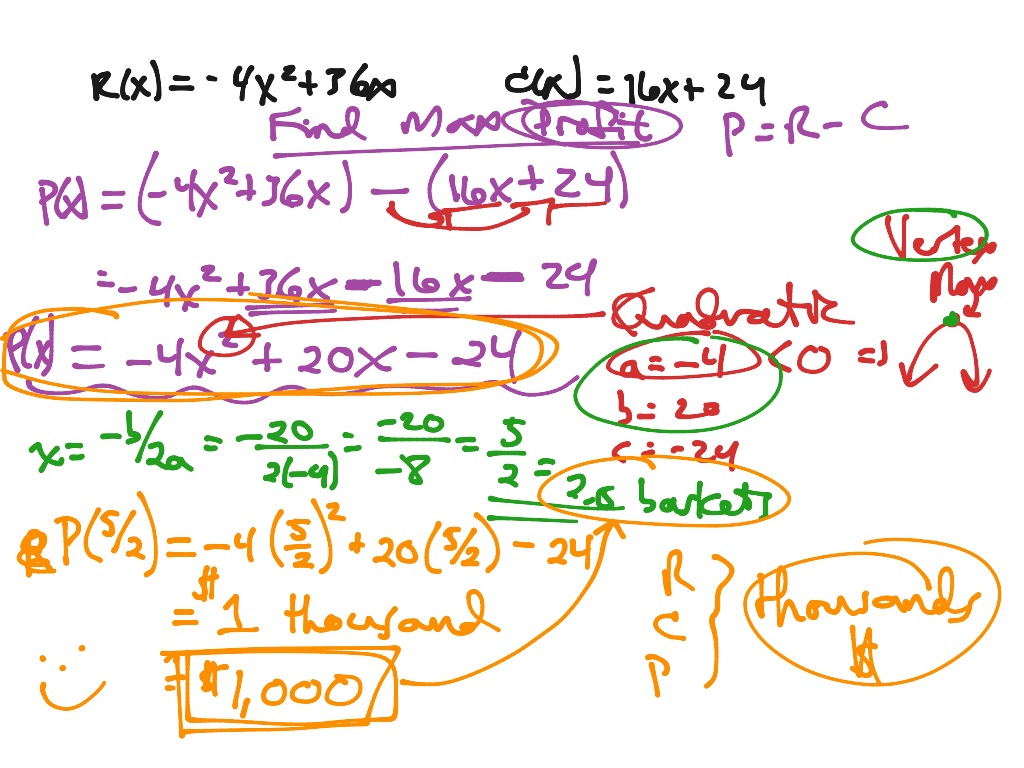 R(x) = -4x²+36x C(x) = 16x+24
Find Max Profit P = R - C
P(x) = (-4x²+36x) - (16x+24)
= -4x²+36x-16x-24
Vertex
Max
P(x) = -4x²+20x-24
Quadratic
a = -4 < 0 =>
b = 20
c = -24
x = -b/2a = -20/2(-4) = -20/-8 = 5/2 = 2.5 baskets
P(5/2) = -4(5/2)²+20(5/2)-24
= $1 thousand
= $1,000
R
C
P
} thousands
$